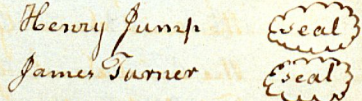 Henry Jump seal
James Turner seal